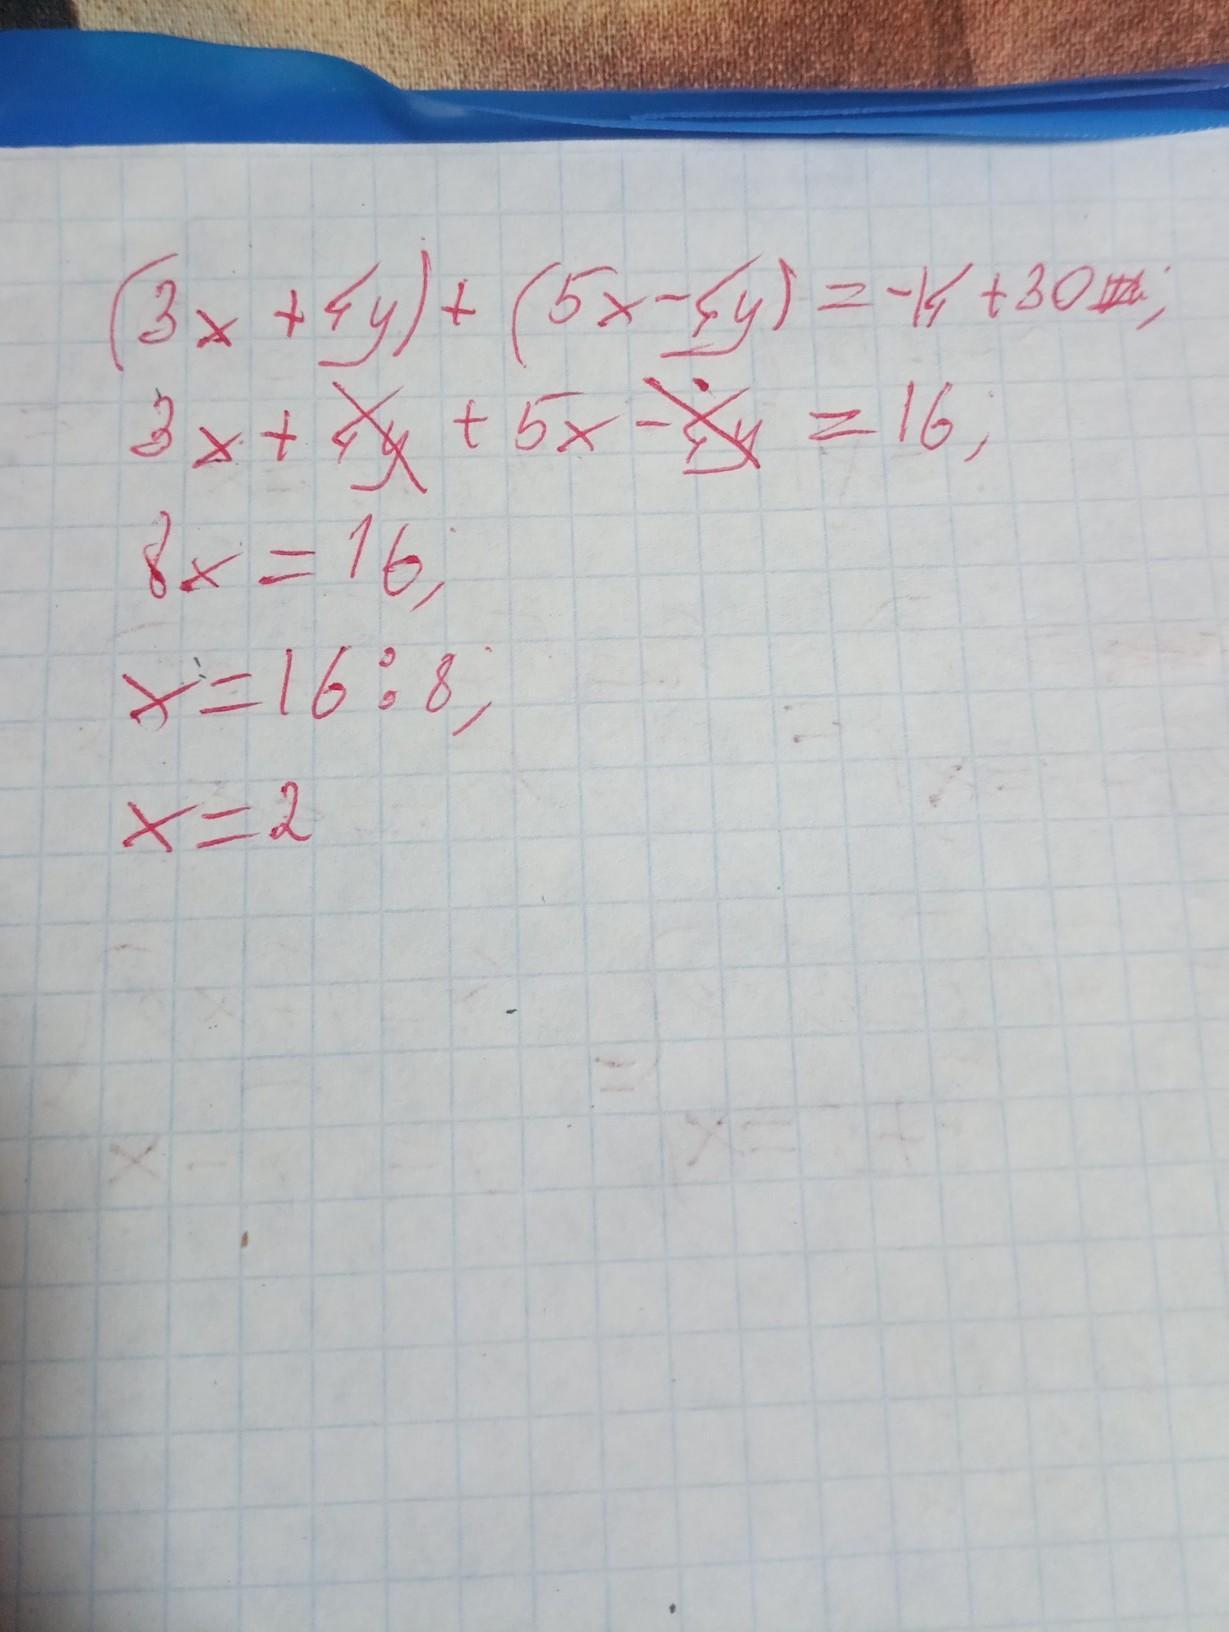 (3x + 4y) + (5x - 4y) = -14 + 30;
3x + 4y + 5x - 4y = 16;
8x = 16;
x = 16 : 8;
x = 2